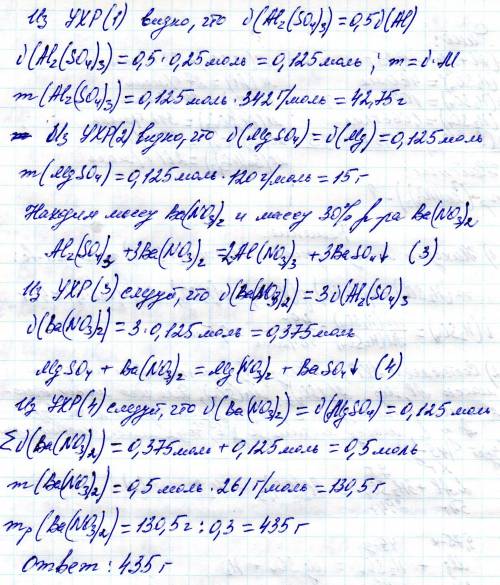 Из УХР(1) видно, что ϑ(Al₂(SO₄)₃)=0,5ϑ(Al)
ϑ(Al₂(SO₄)₃)=0,5·0,25моль=0,125моль; m=ϑ·M
m(Al₂(SO₄)₃)=0,125моль·342Г/моль=42,75г
Из УХР(2) видно, что ϑ(MgSO₄)=ϑ(Mg)=0,125моль
m(MgSO₄)=0,125моль·120г/моль=15г
Находим массу Ba(NO₃)₂ и массу 30% р-ра Ba(NO₃)₂
Al₂(SO₄)₃+3Ba(NO₃)₂=2Al(NO₃)₃+3BaSO₄↓ (3)
Из УХР(3) следует, что ϑ(Ba(NO₃)₂)=3ϑ(Al₂(SO₄)₃
ϑ(Ba(NO₃)₂)=3·0,125моль=0,375моль
MgSO₄+Ba(NO₃)₂=Mg(NO₃)₂+BaSO₄↓ (4)
Из УХР(4) следует, что ϑ(Ba(NO₃)₂)=ϑ(MgSO₄)=0,125моль
Σϑ(Ba(NO₃)₂)=0,375моль+0,125моль=0,5моль
m(Ba(NO₃)₂)=0,5моль·261Г/моль=130,5г
mр(Ba(NO₃)₂)=130,5г:0,3=435г
Ответ: 435г